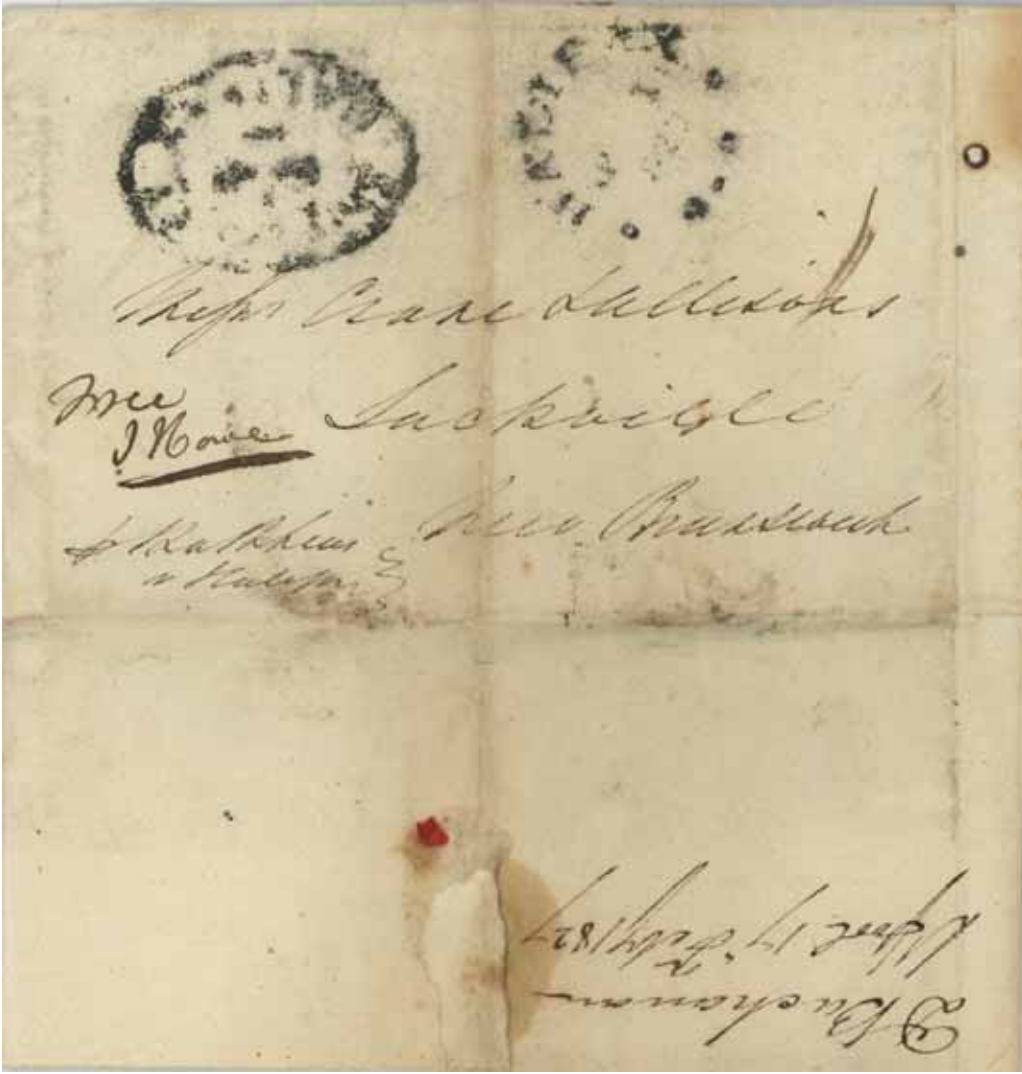 HALIFAX
Messrs Crane & Allisons
Free
J Howe
Sackville
New Brunswick
D Buchanan
L'pool 17 Feby 1827